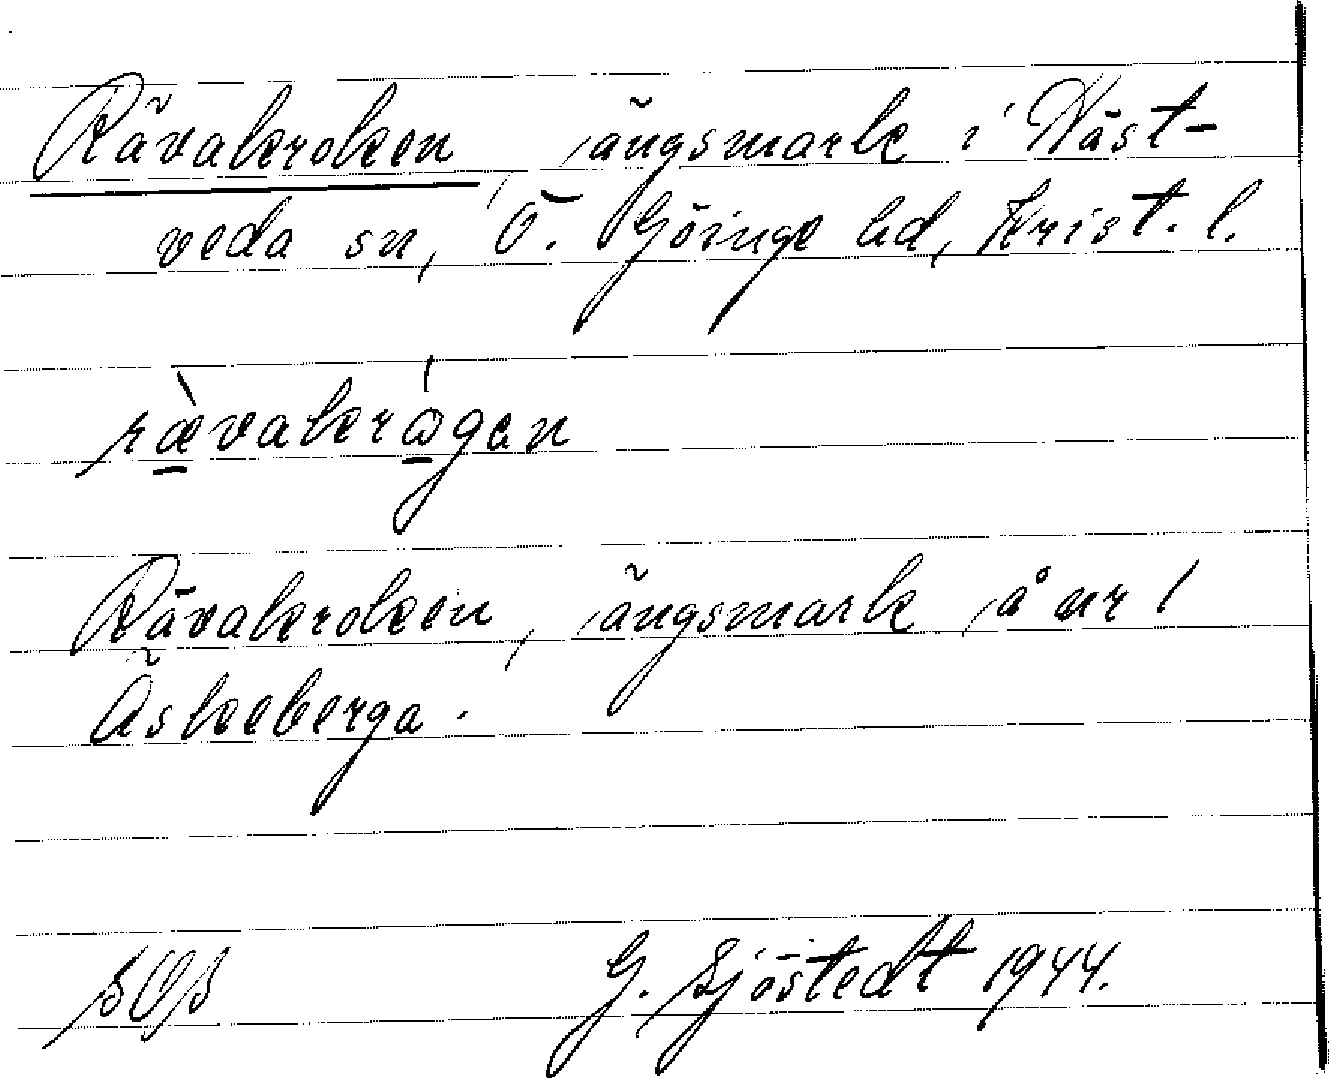 Rävakroken, ängsmark i Näst-
veda sn, Ö. Göinge hd, Krist. l.
rævakrågen
Rävakroken, ängsmark å nr 1
Äskeberga.
SOS G. Sjöstedt 1944.